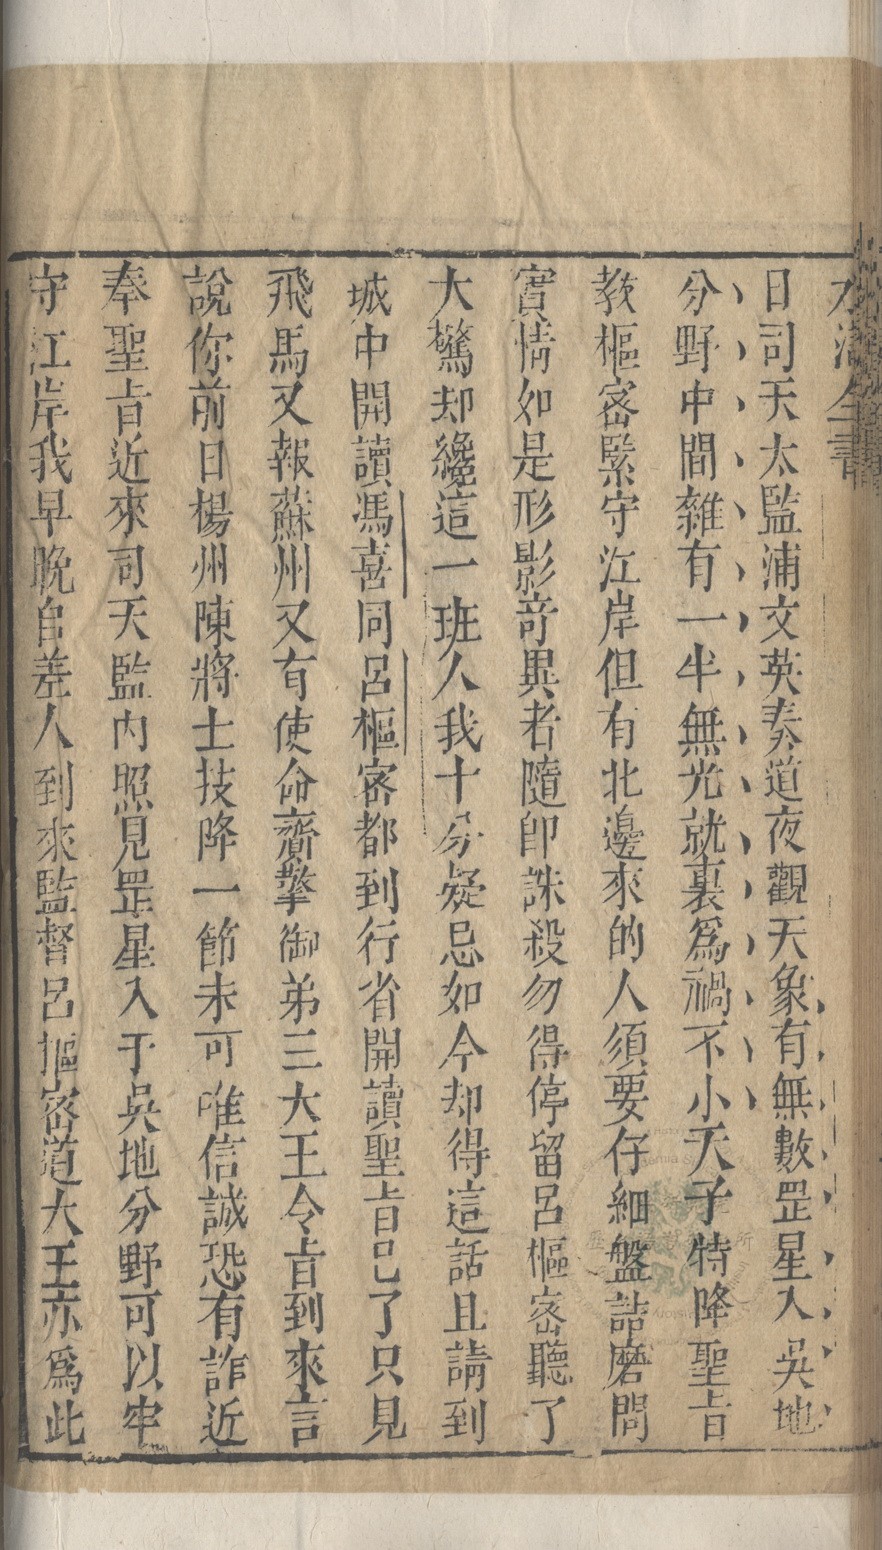 水滸全書
日司天太監浦文英奏道夜觀天象有無數罡星入吳地
分野中間雜有一半無光就裏爲禍不小天子特降聖旨
教樞密緊守江岸但有北邊來的人須要仔細盤詰磨問
實情如是形影竒異者隨即誅殺勿得停留呂樞密聽了
大驚却纔這一班人我十分疑忌如今却得這話且請到
城中開讀馮喜同呂樞密都到行省開讀聖旨已了只見
飛馬又報蘇州又有使命齎擎御弟三大王令旨到來言
說你前日楊州陳將士技降一節未可唯信誠恐有詐近
奉聖旨近來司天監內照見罡星入于吳地分野可以牢
守江岸我早晚自差人到來監督呂樞密道大王亦爲此